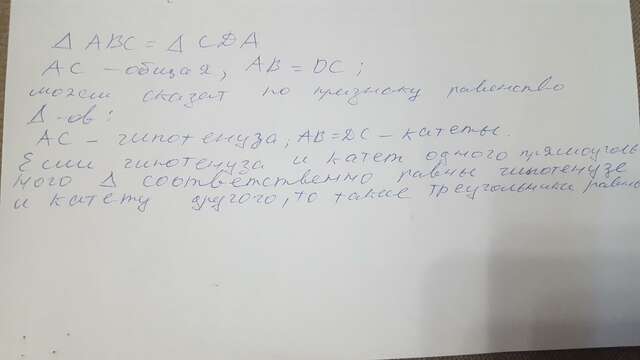 Δ ABC = Δ CDA
AC - общая, AB = DC;
можем сказат по признаку равенство
Δ-ов:
AC - гипотенуза, AB=DC - катеты.
Если гипотенуза и катет одного прямоуголь
ного Δ соответственно равны гипотенузе
и катету другого, то такие треугольники равны